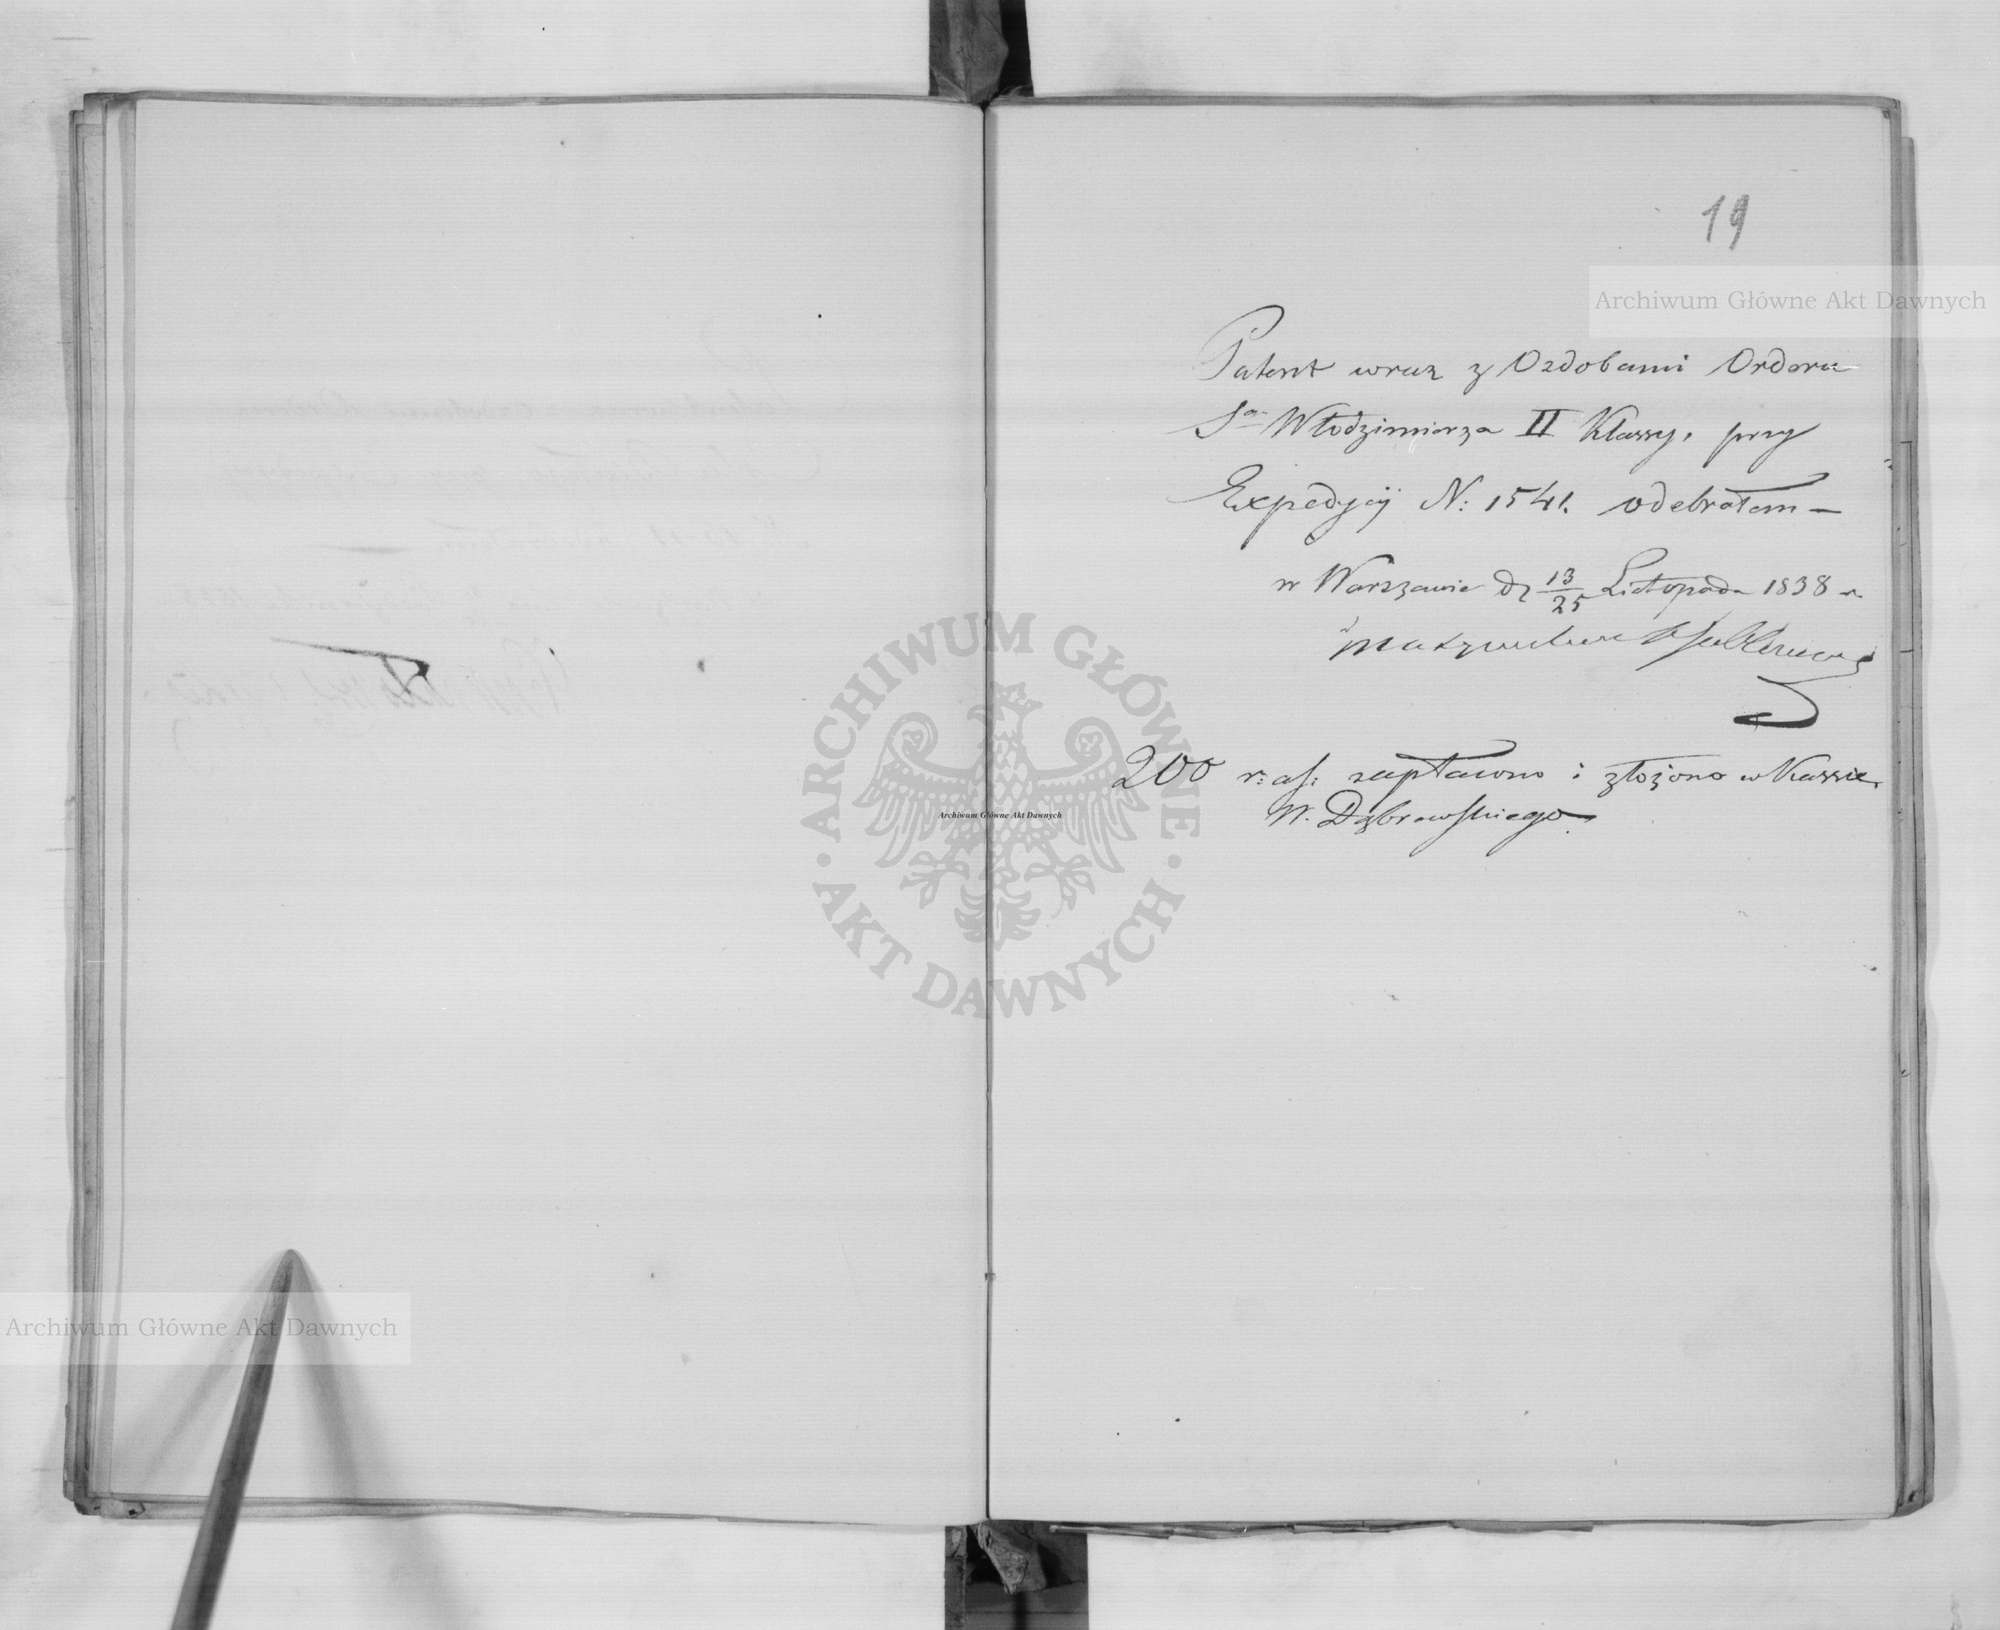 19
Archiwum Główne Akt Dawnych
Patent wraz z Ozdobami Orderu
Sgo Włodzimierza II Klassy, przy
Expedycyi N: 1541. odebrałem —
w Warszawie d 13/25 Listopada 1838 r.
200 r: as: zapłacono i złożono w Kassie
W. Dąbrowskiego.
ARCHIWUM GŁÓWNE
AKT DAWNYCH
Archiwum Główne Akt Dawnych
Archiwum Główne Akt Dawnych